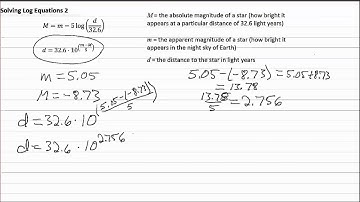 Solving Log Equations 2
M = m − 5 log(d/32.6)
d = 32.6 · 10^((m−M)/5)
M = the absolute magnitude of a star (how bright it
appears at a particular distance of 32.6 light years)
m = the apparent magnitude of a star (how bright it
appears in the night sky of Earth)
d = the distance to the star in light years
m = 5.05
M = −8.73
d = 32.6 · 10^((5.05−(−8.73))/5)
d = 32.6 · 10^2.756
5.05 − (−8.73) = 5.05 + 8.73
= 13.78
13.78/5 = 2.756